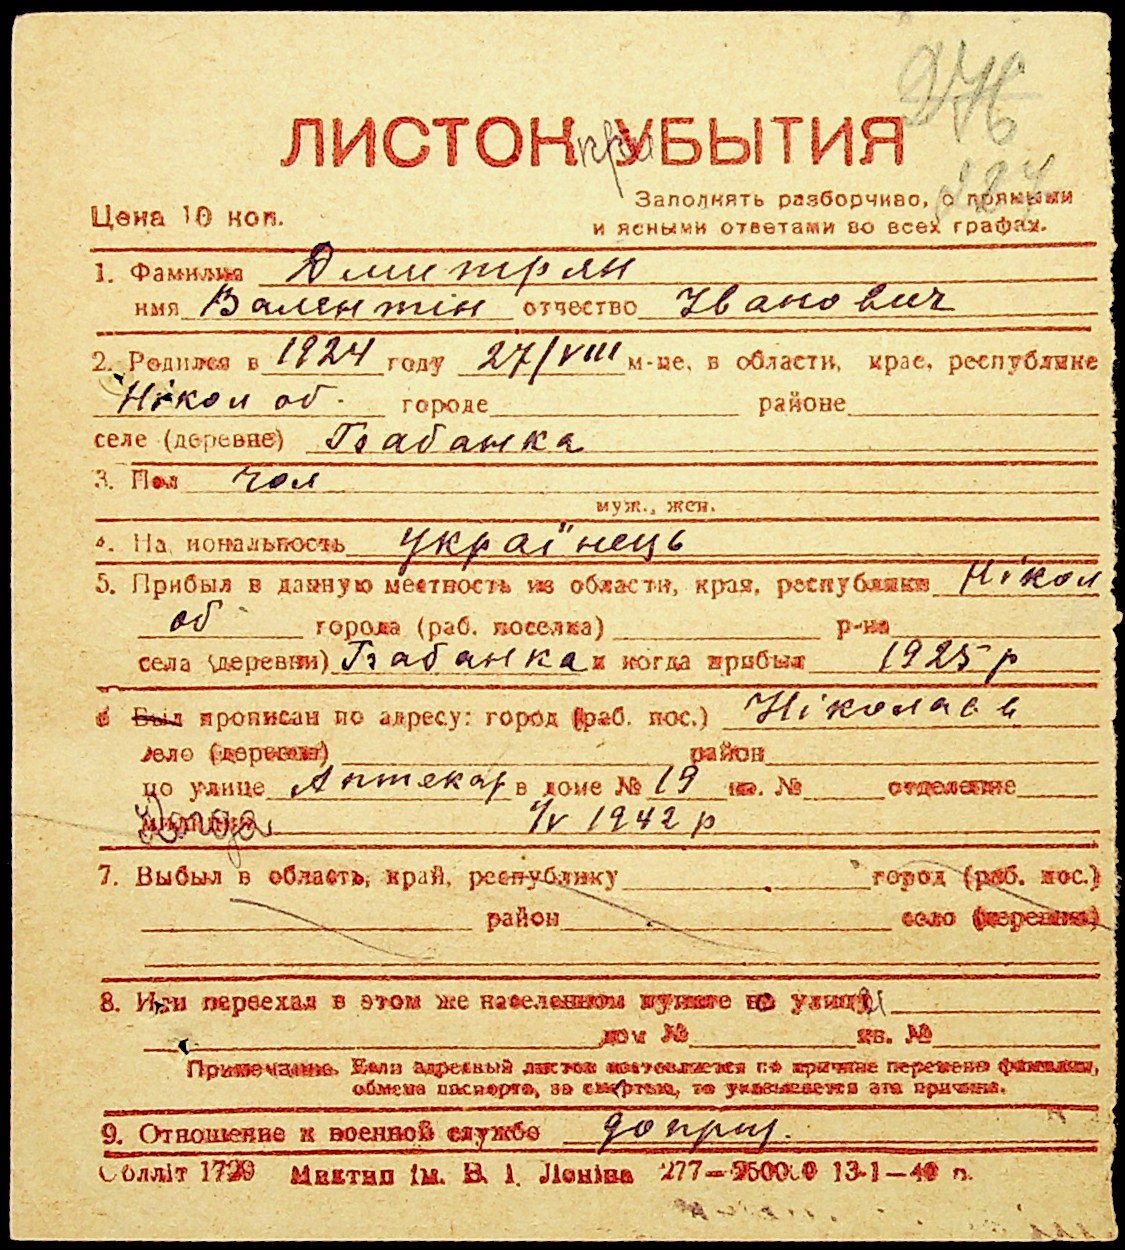 276
ЛИСТОК УБЫТИЯ
при
127
Заполнять разборчиво, с прямыми
Цена 10 коп.
и ясными ответами во всех графах.
1. Фамилия Дмитрян
имя Валентін отчество Іванович
2. Родился в 1924 году 27/VIII м-це, в области, крае, республике
Нікол об. городе районе
селе (деревне) Бабанка
3. Пол чол
муж., жен.
4. Национальность українець
5. Прибыл в данную местность из области, края, республики Нікол
об города (раб. поселка) р-на
села (деревни) Бабанка и когда прибыл 1925 р
6 Был прописан по адресу: город (раб. пос.) Ніколаєв
село (деревня) район
по улице Аптекар в доме № 19 кв. № отделение
милиции 1/V 1942 р
7. Выбыл в область, край, республику город (раб. пос.)
район село (деревня)
8. Или переехал в этом же населенном пункте на улицу
дом № кв. №
Примечание. Если адресный листок составляется по причине перемены фамилии,
обмена паспорта, за смертью, то указывается эта причина.
9. Отношение к военной службе доприз.
Облліт 1729 Миктип ім. В. І. Леніна 277—250000 13-1—40 р.